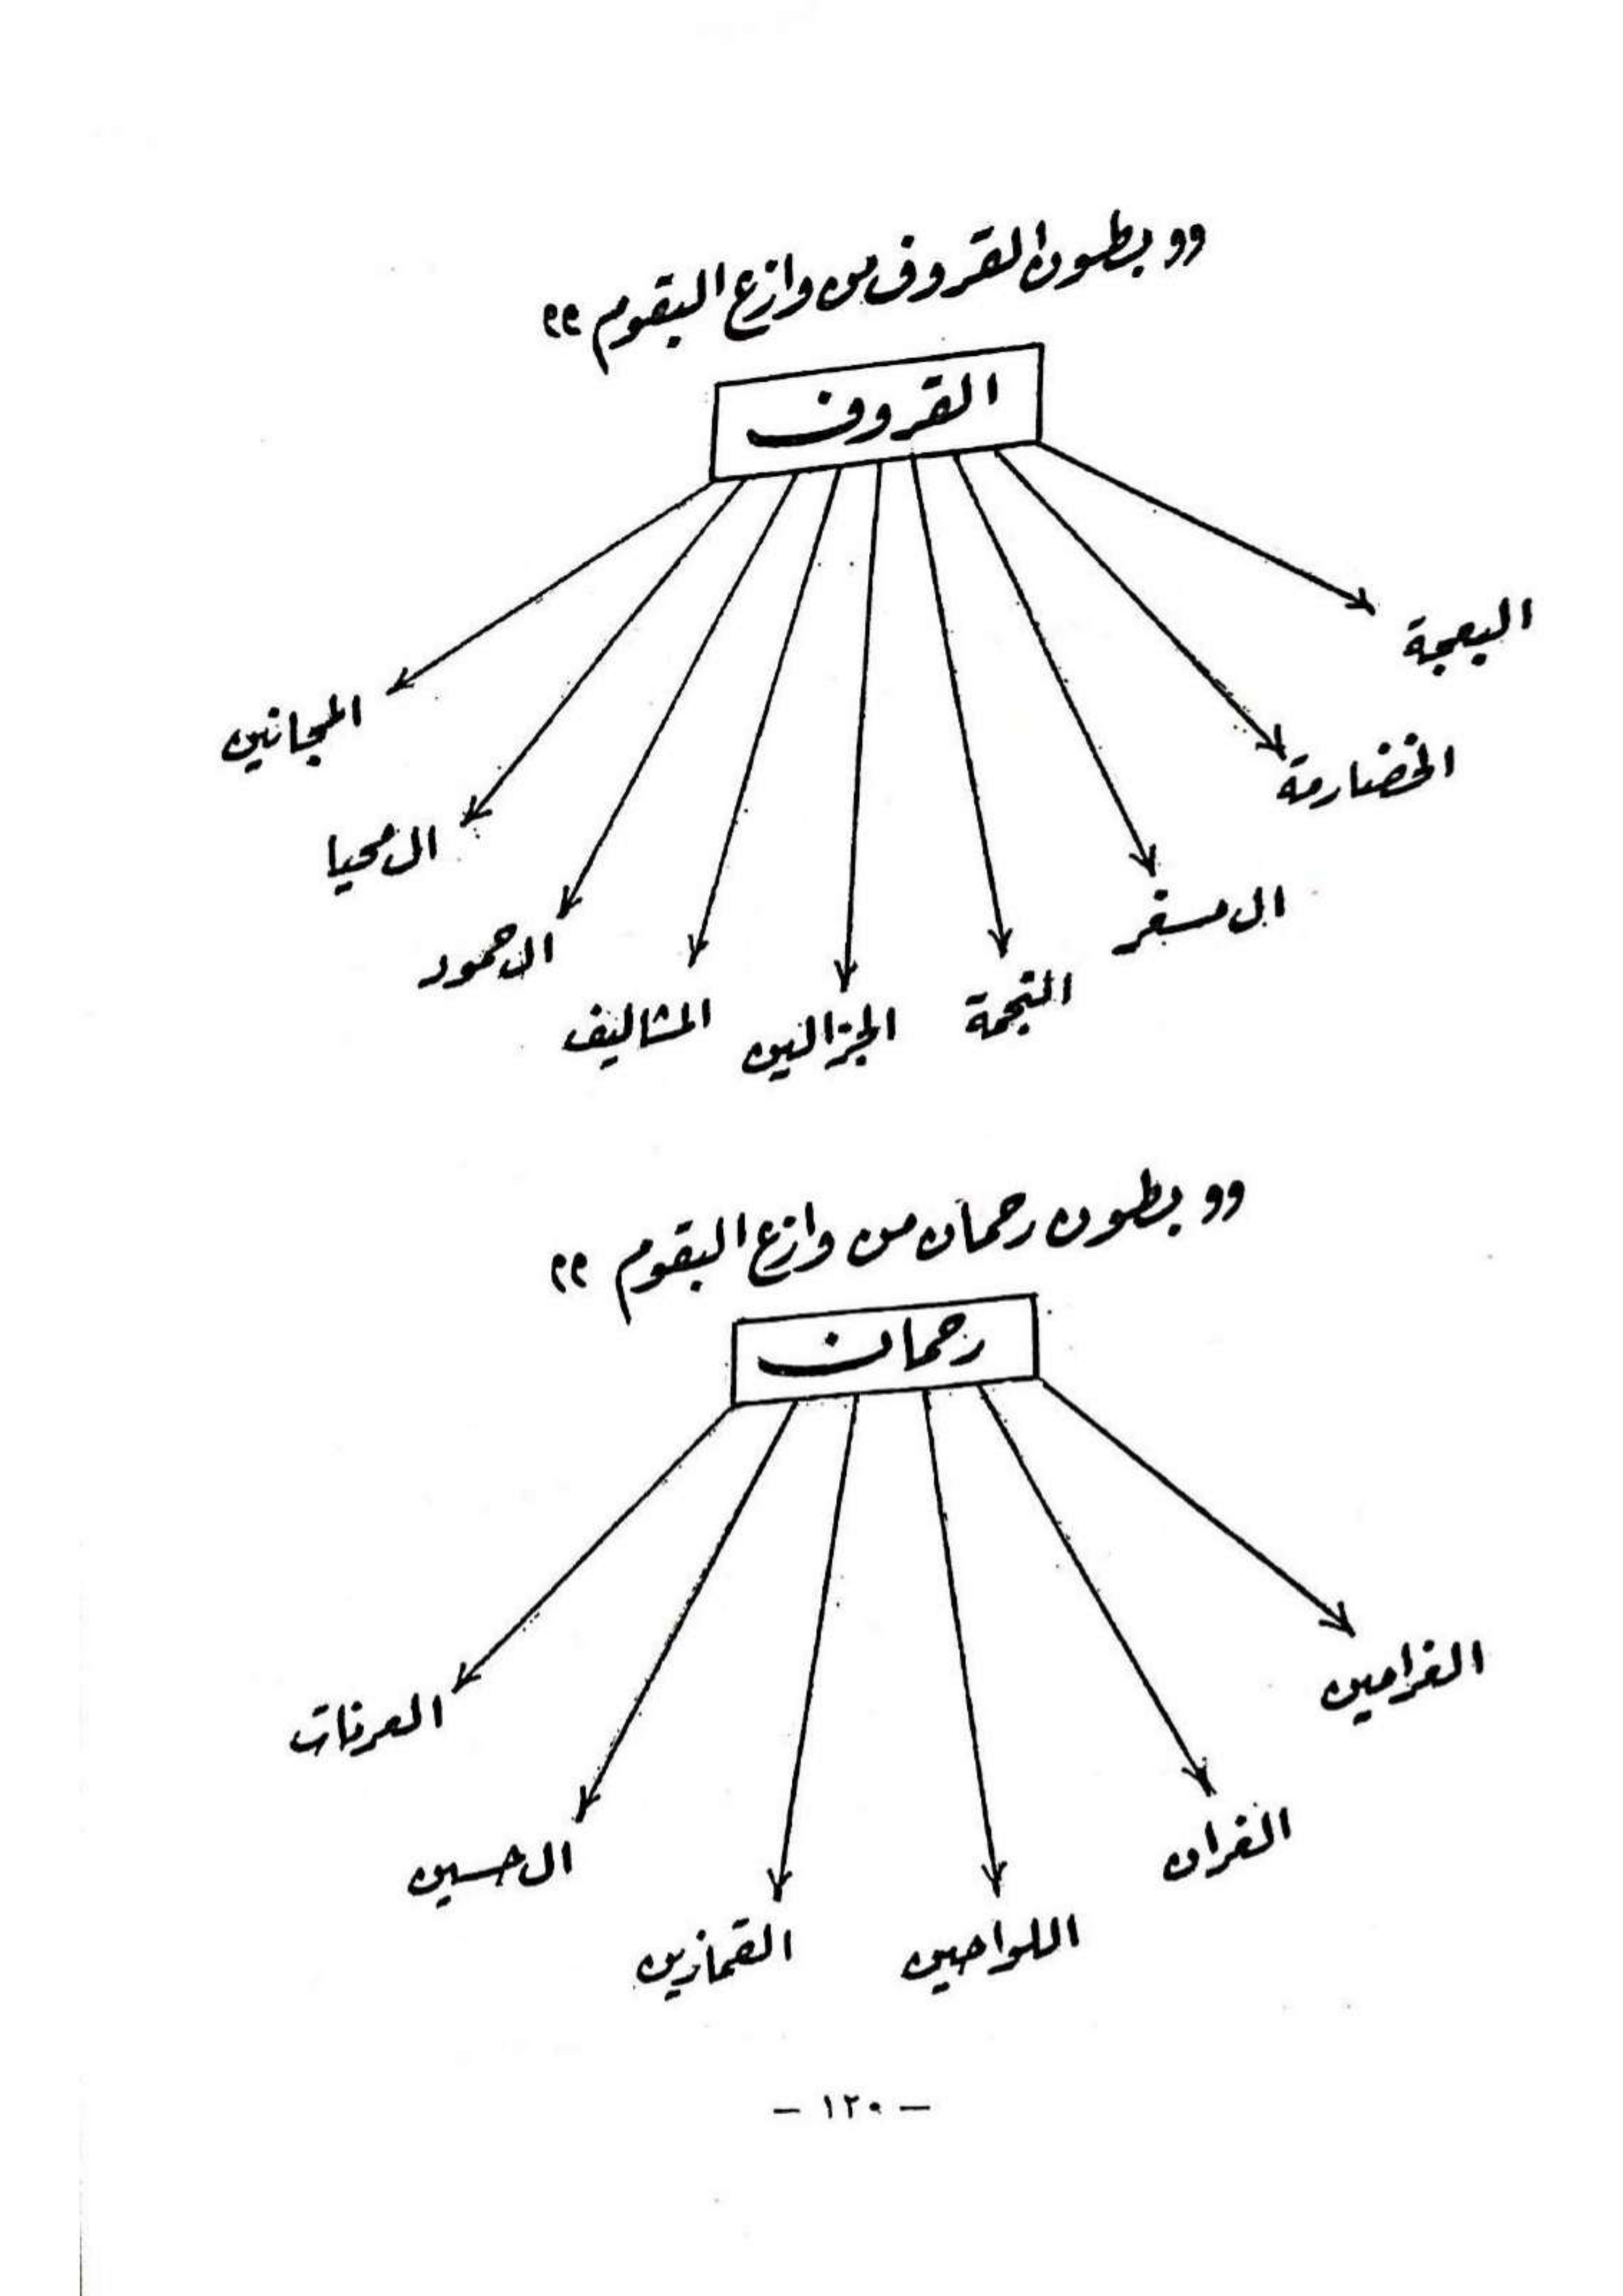 «بطون القروف من وازع البقوم»
القروف
البعجة
الخضارمة
ال مسفر
النجمة
الجزالين
المشاليف
ال حمود
ال محيا
المجانين
«بطون رحمان من وازع البقوم»
رحمان
الغرامين
الغران
اللواحين
القمازين
ال حسين
العرنات
- ١٢٠ -